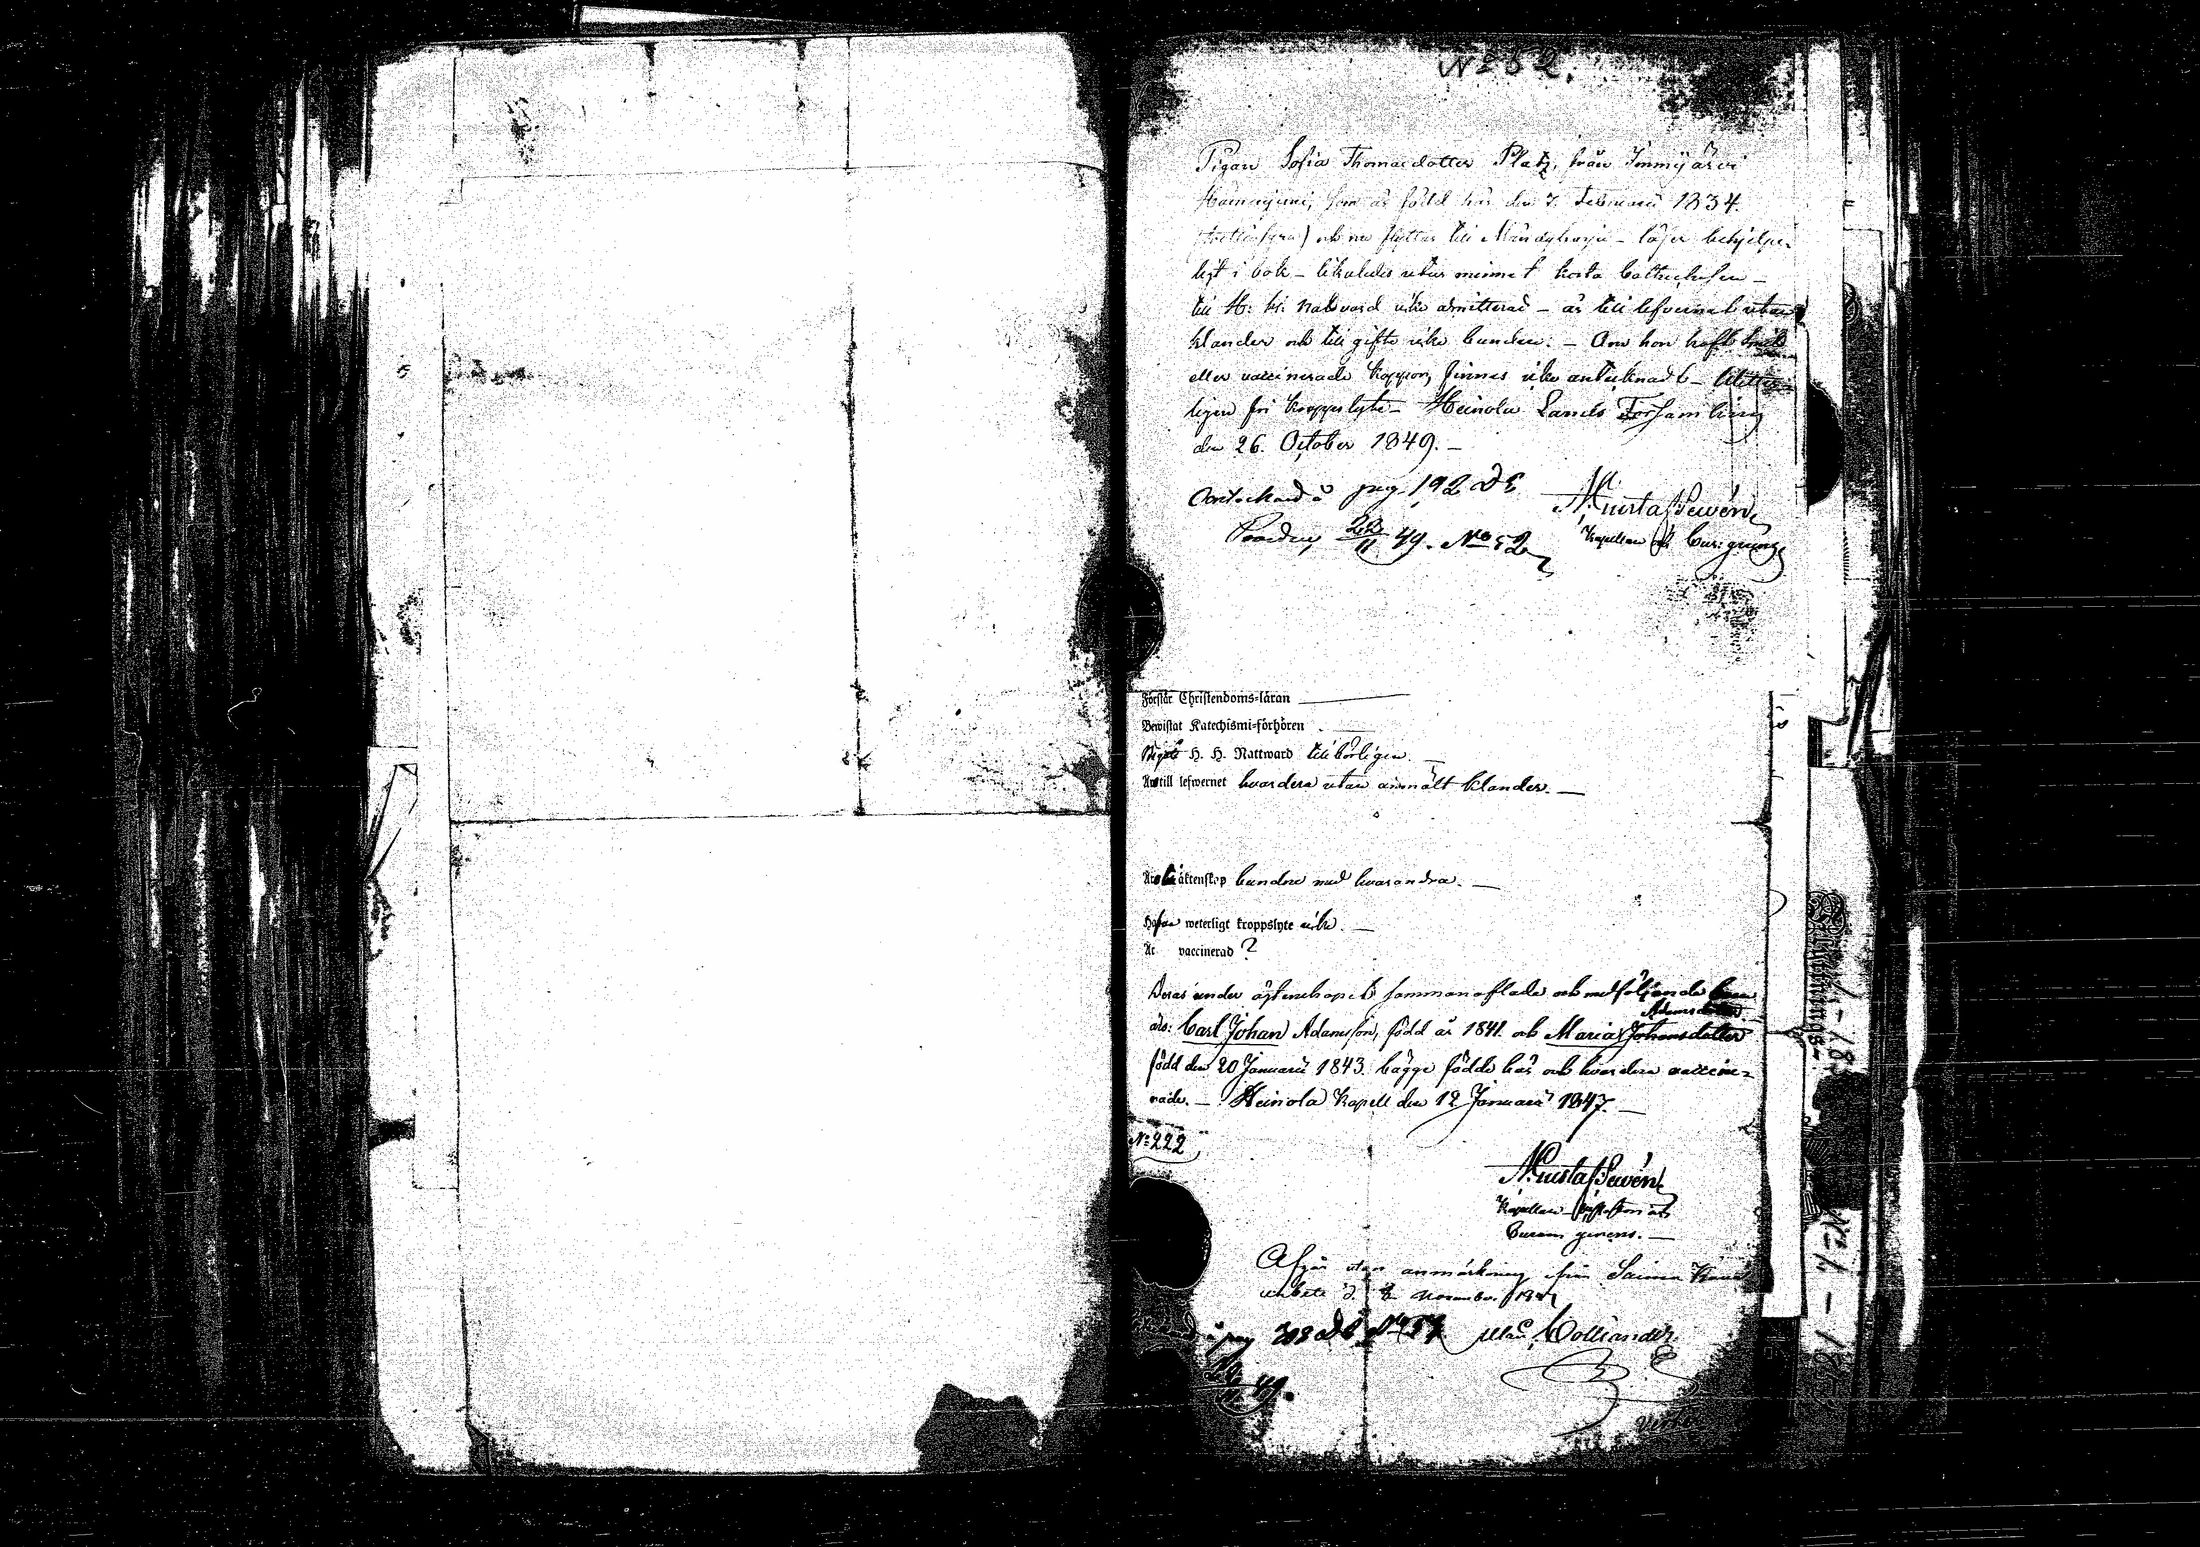 No 52.
Pigan Sofia Thomasdotter Platz, från Immijärvi
som är född här den 7. Februarii 1834.
och nu flyttar till Mäntyharju – läser behjelpe-
ligt i bok – likaledes utur minnet korta Cathechesen –
till H: H: Nattvard icke admitterad – är till lefvernet utan
klander och till gifte icke bunden. – Om hon haft
eller vaccinerade koppor, finnes icke antecknadt –
ligen fri kroppslyte – Heinola Lands Församling
den 26. October 1849. –
Antecknad å pag. 192
Gustaf
Kapellan och Cur: gerens
49. No 52
Förstår Christendoms-läran
Bewistat Katechismi-förhören
Begått H. H. Nattward tillbörligen. –
Äro till lefwernet hvardera utan anmält klander. –
Äro i äktenskap bundne med hvarandra. –
Hafva weterligt kroppslyte icke. –
Är vaccinerad ?
Deras under äktenskapet sammanaflade och medföljande barn
Adamsdotter
äro: Carl Johan Adamsson, född år 1841. och Maria Johansdotter
född den 20 Januarii 1843. bägge födde här och hvardera vaccine-
rade. – Heinola Kapell den 12 Januarii 1847. –
No 222
Gustaf
Kapellan
Curam gerens. –
Afgår utan anmärkning från Saima Kanal
arbete d. November
å pag Colliander
49.